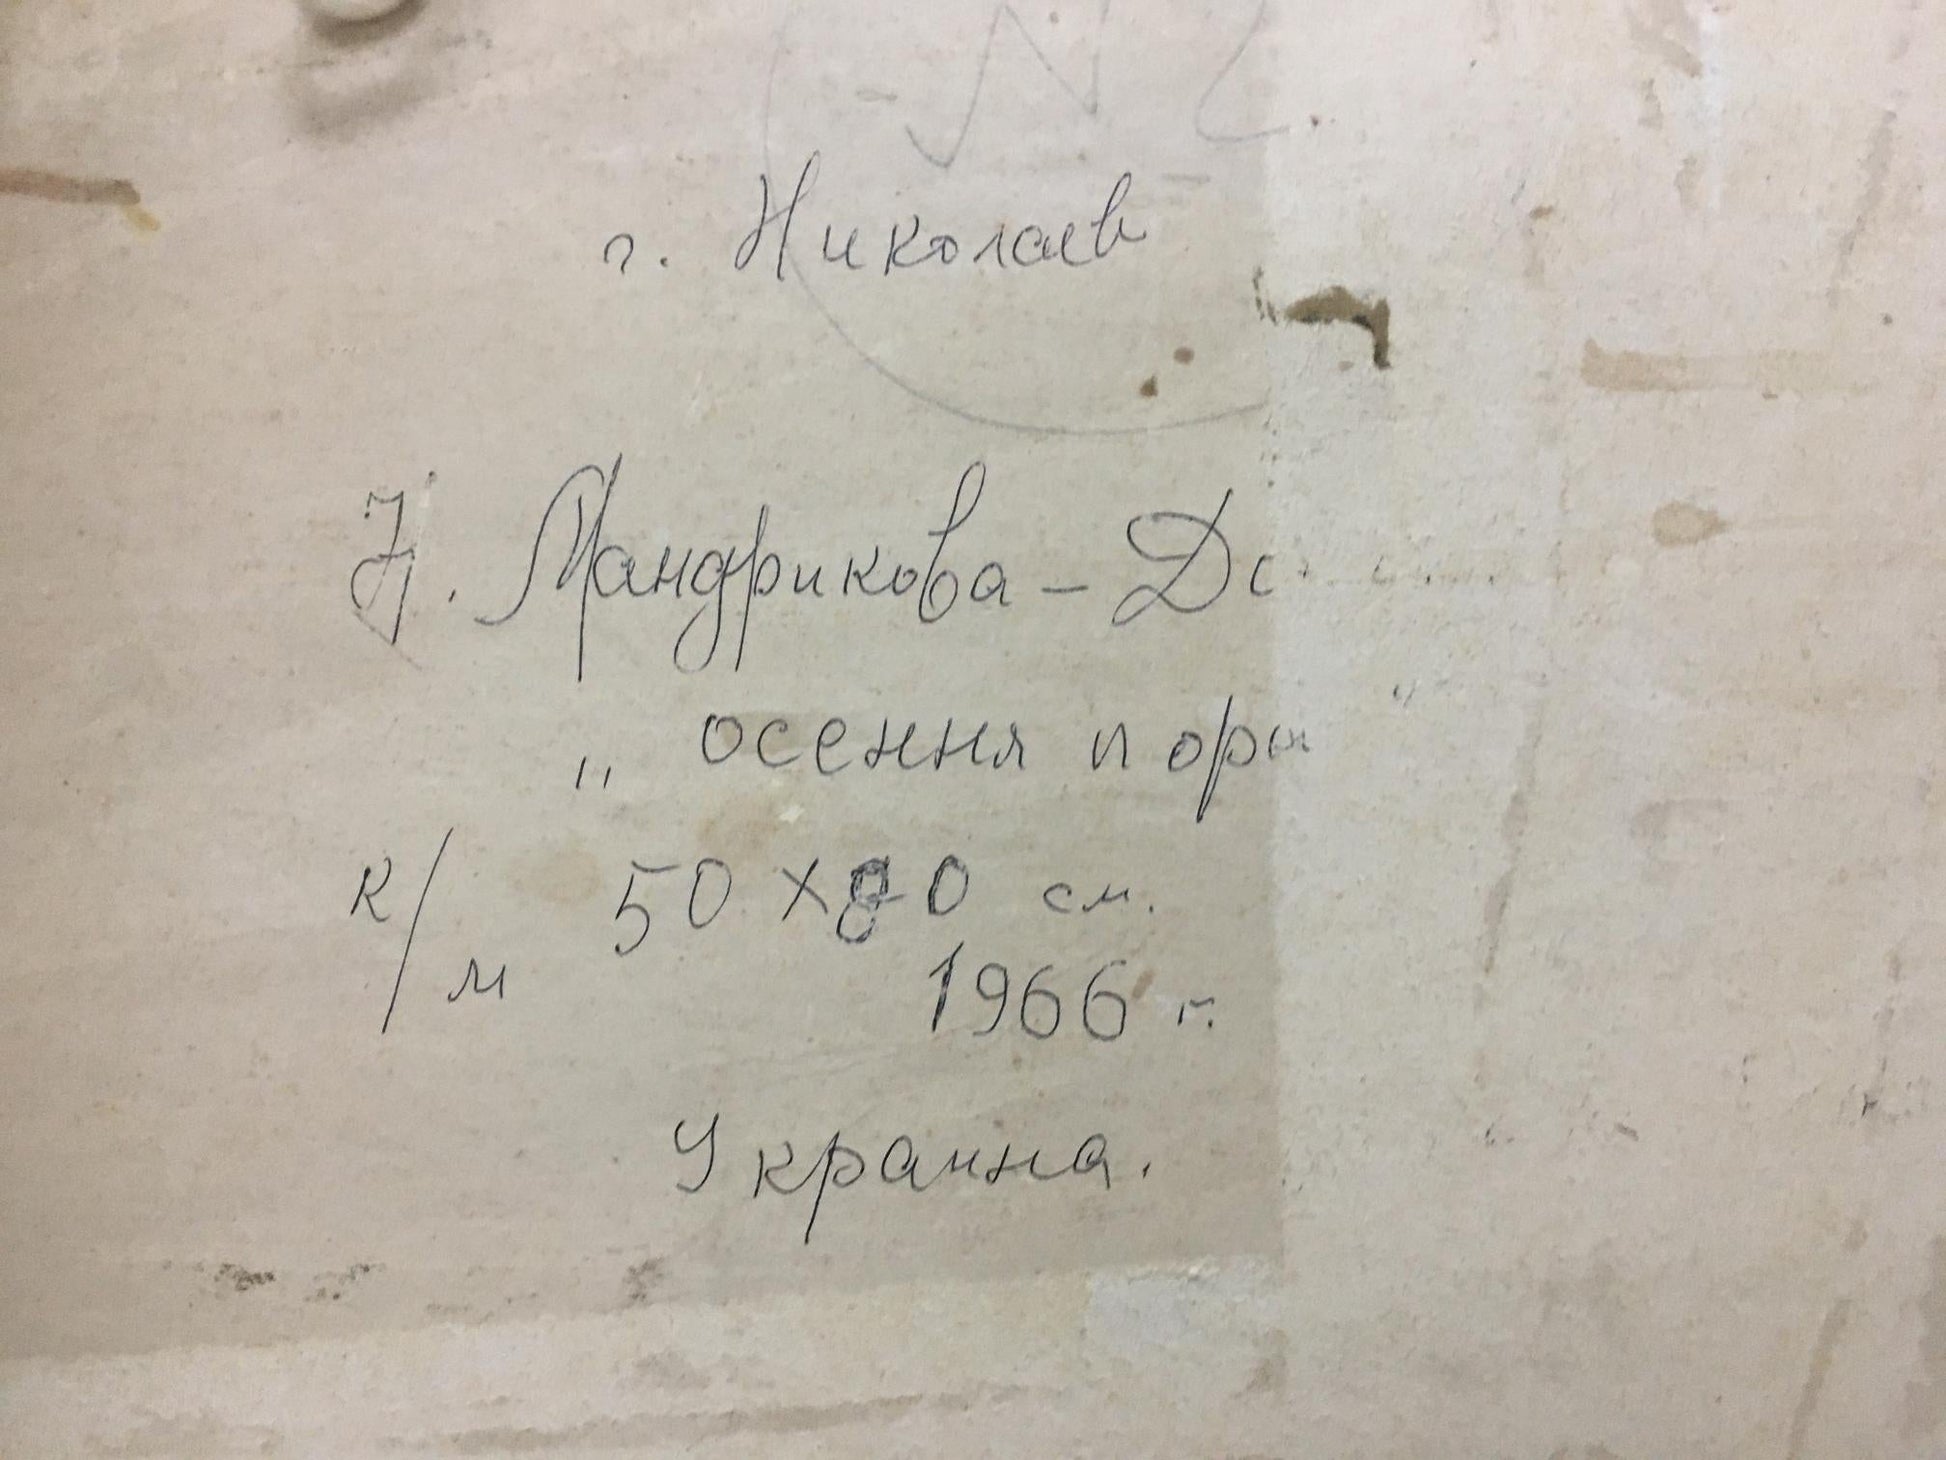 г. Николаев
Н. Мандрикова - До
„ осення пора "
к/м 50 х 80 см.
1966 г.
Украина.